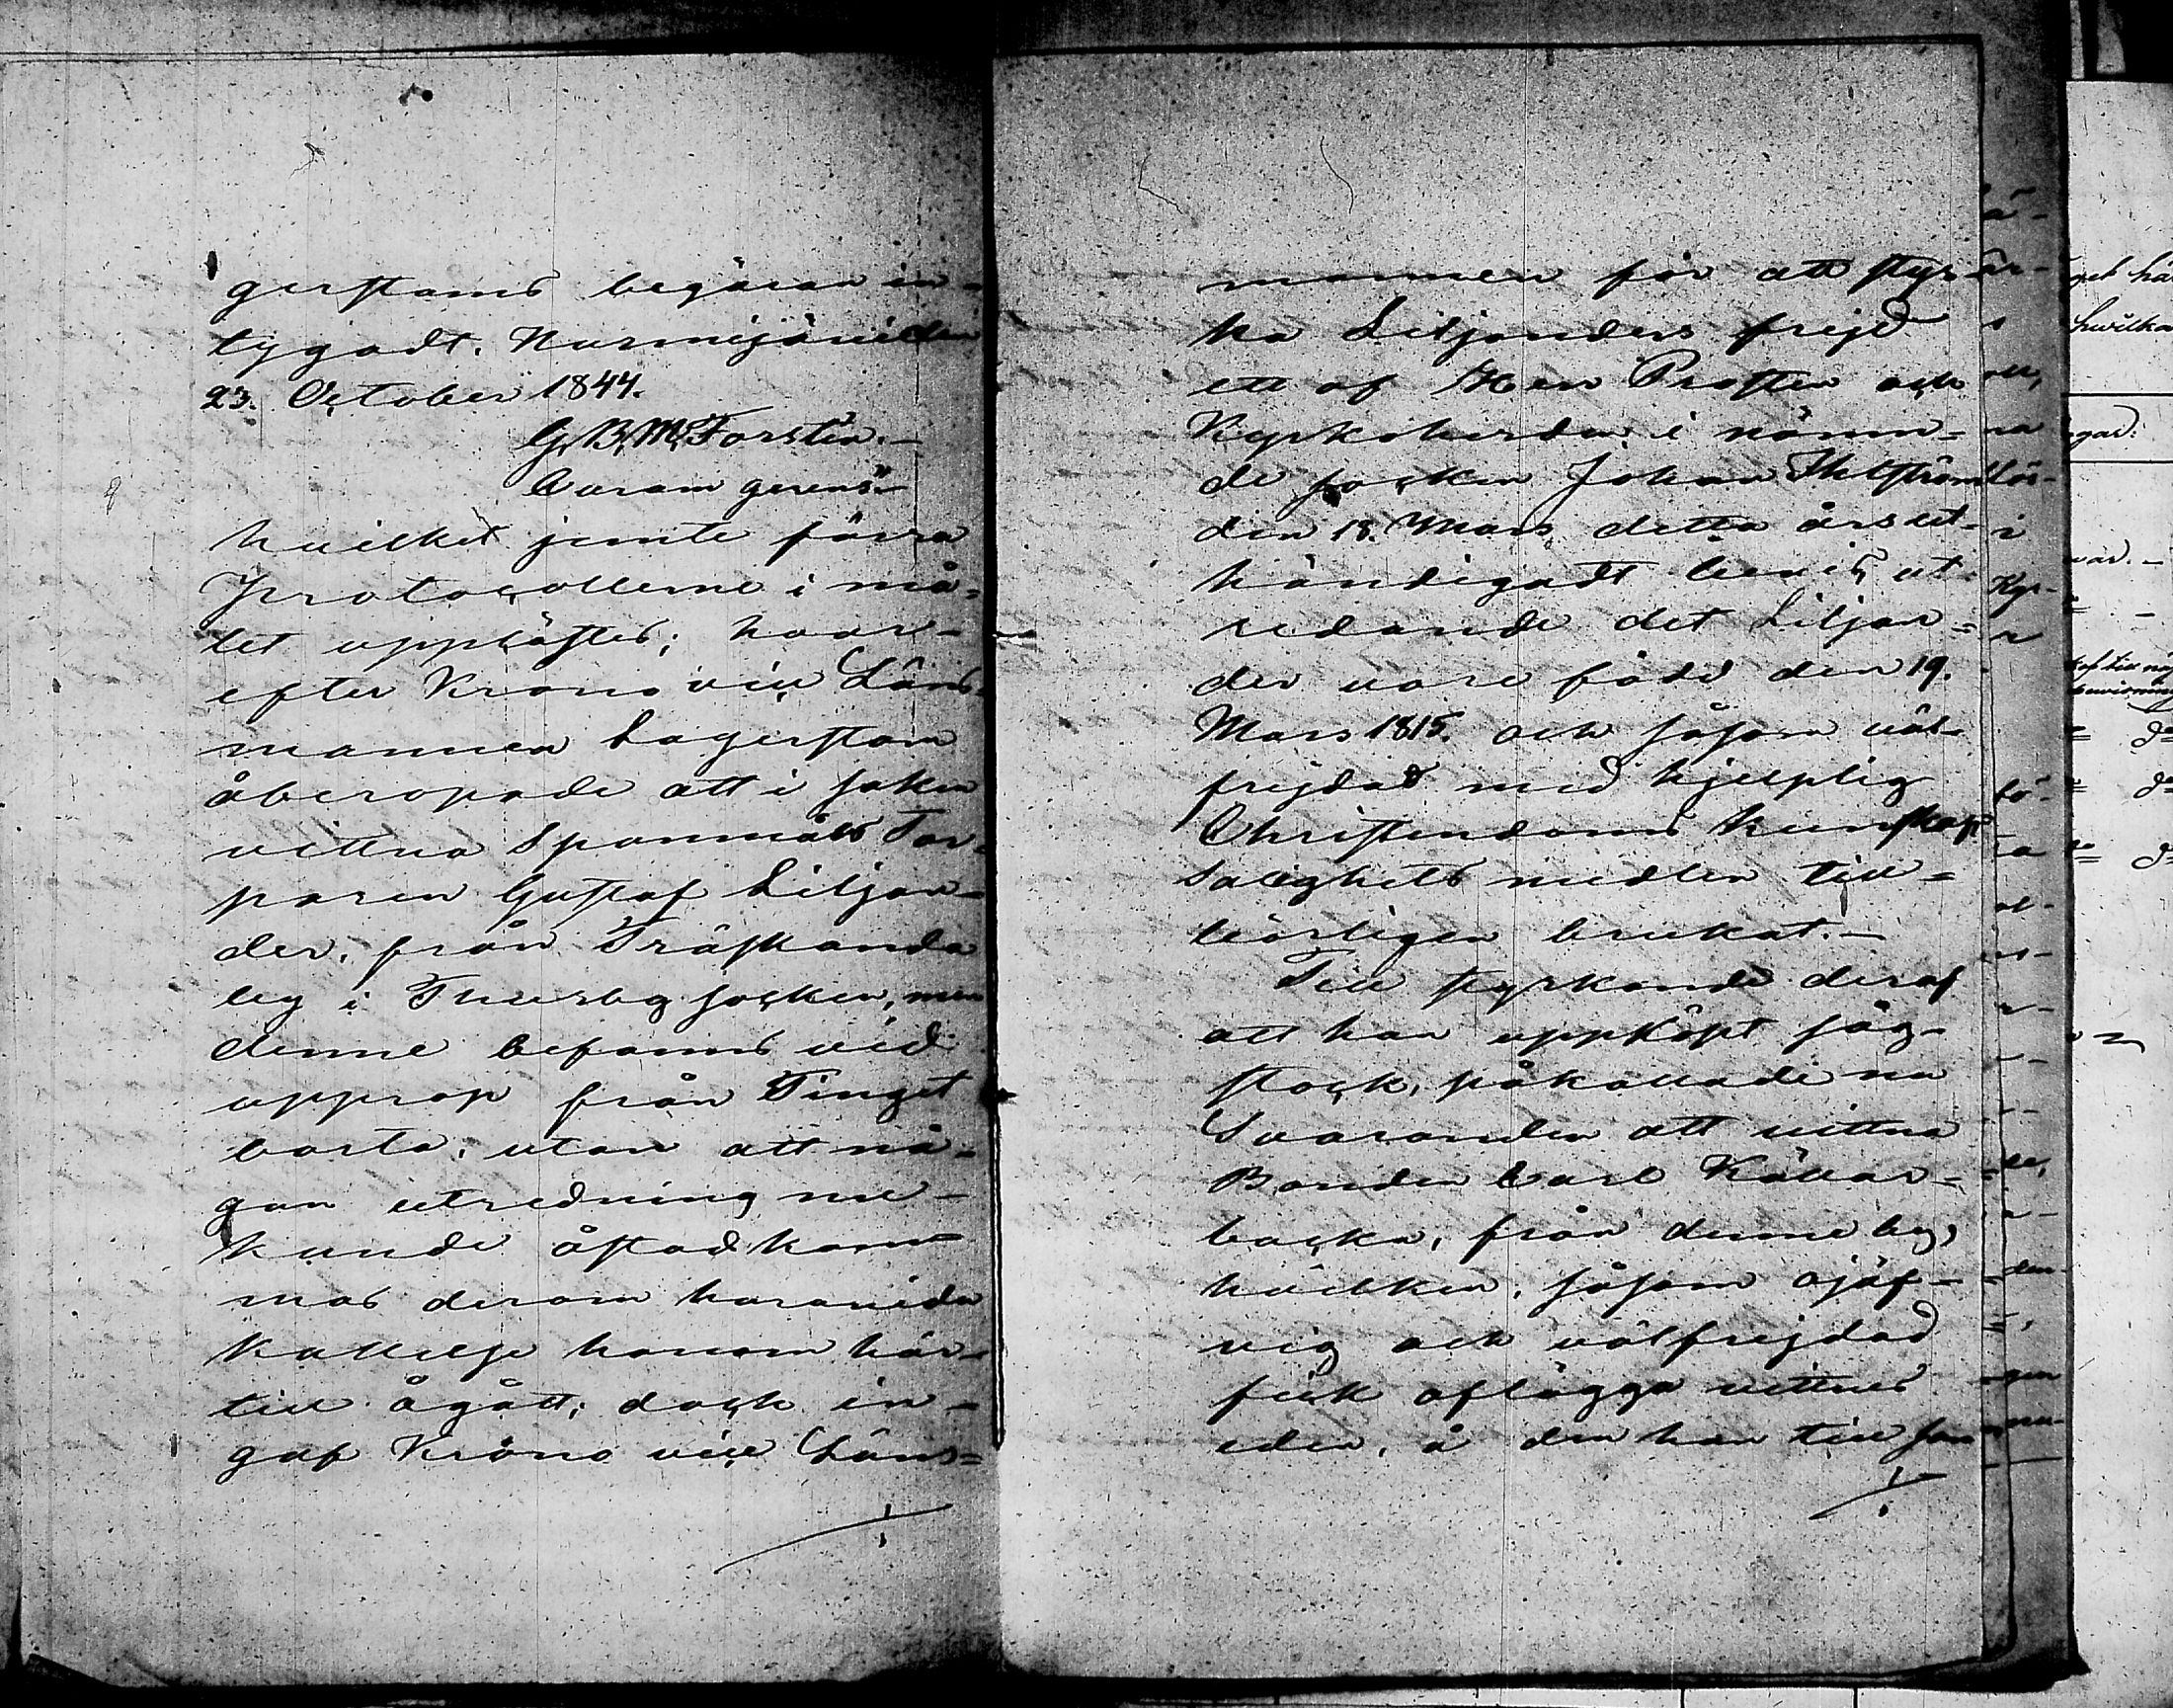 gerstams begäran in-
tygadt. Nurmijärvi den
23. October 1844.
G. B. M. Forstén.-
Curam gerens.-
hvilket jemte förra
Protocollerne i må-
let upplästes; hvar-
efter Krono vice Läns-
mannen Lagerstam
åberopade att i saken
vittna Spanmåls Tor-
paren Gustaf Liljan-
der, från Träskända
by i Thusby socken, men
denne befanns vid
upprop från Tinget
borta, utan att nå-
gon utredning nu
kunde åstadkom-
mas derom huruvida
kallelse honom här-
till ågått; dock in-
gaf Krono vice Läns-
mannen för att styr-
ka Liljanders frejd
ett af Herr Prosten och
Kyrkoherden i nämn-
de socken Johan Ihlström
den 18. Mars detta års ut-
händigadt bevis, ut-
redande det Liljan-
der vore född den 19.
Mars 1815. och såsom väl-
frejdad med hjelplig
Christendoms kunskap
Salighets medlen till-
börligen brukat.-
Till styrkande deraf
att han uppköpt såg-
stock, påkallade nu
Svaranden att vittna
Bonden Carl Källar-
backa, från denne by,
hvilken, såsom ojäf-
vig och välfrejdad
fick aflägga vittnes
eden, å den han till san